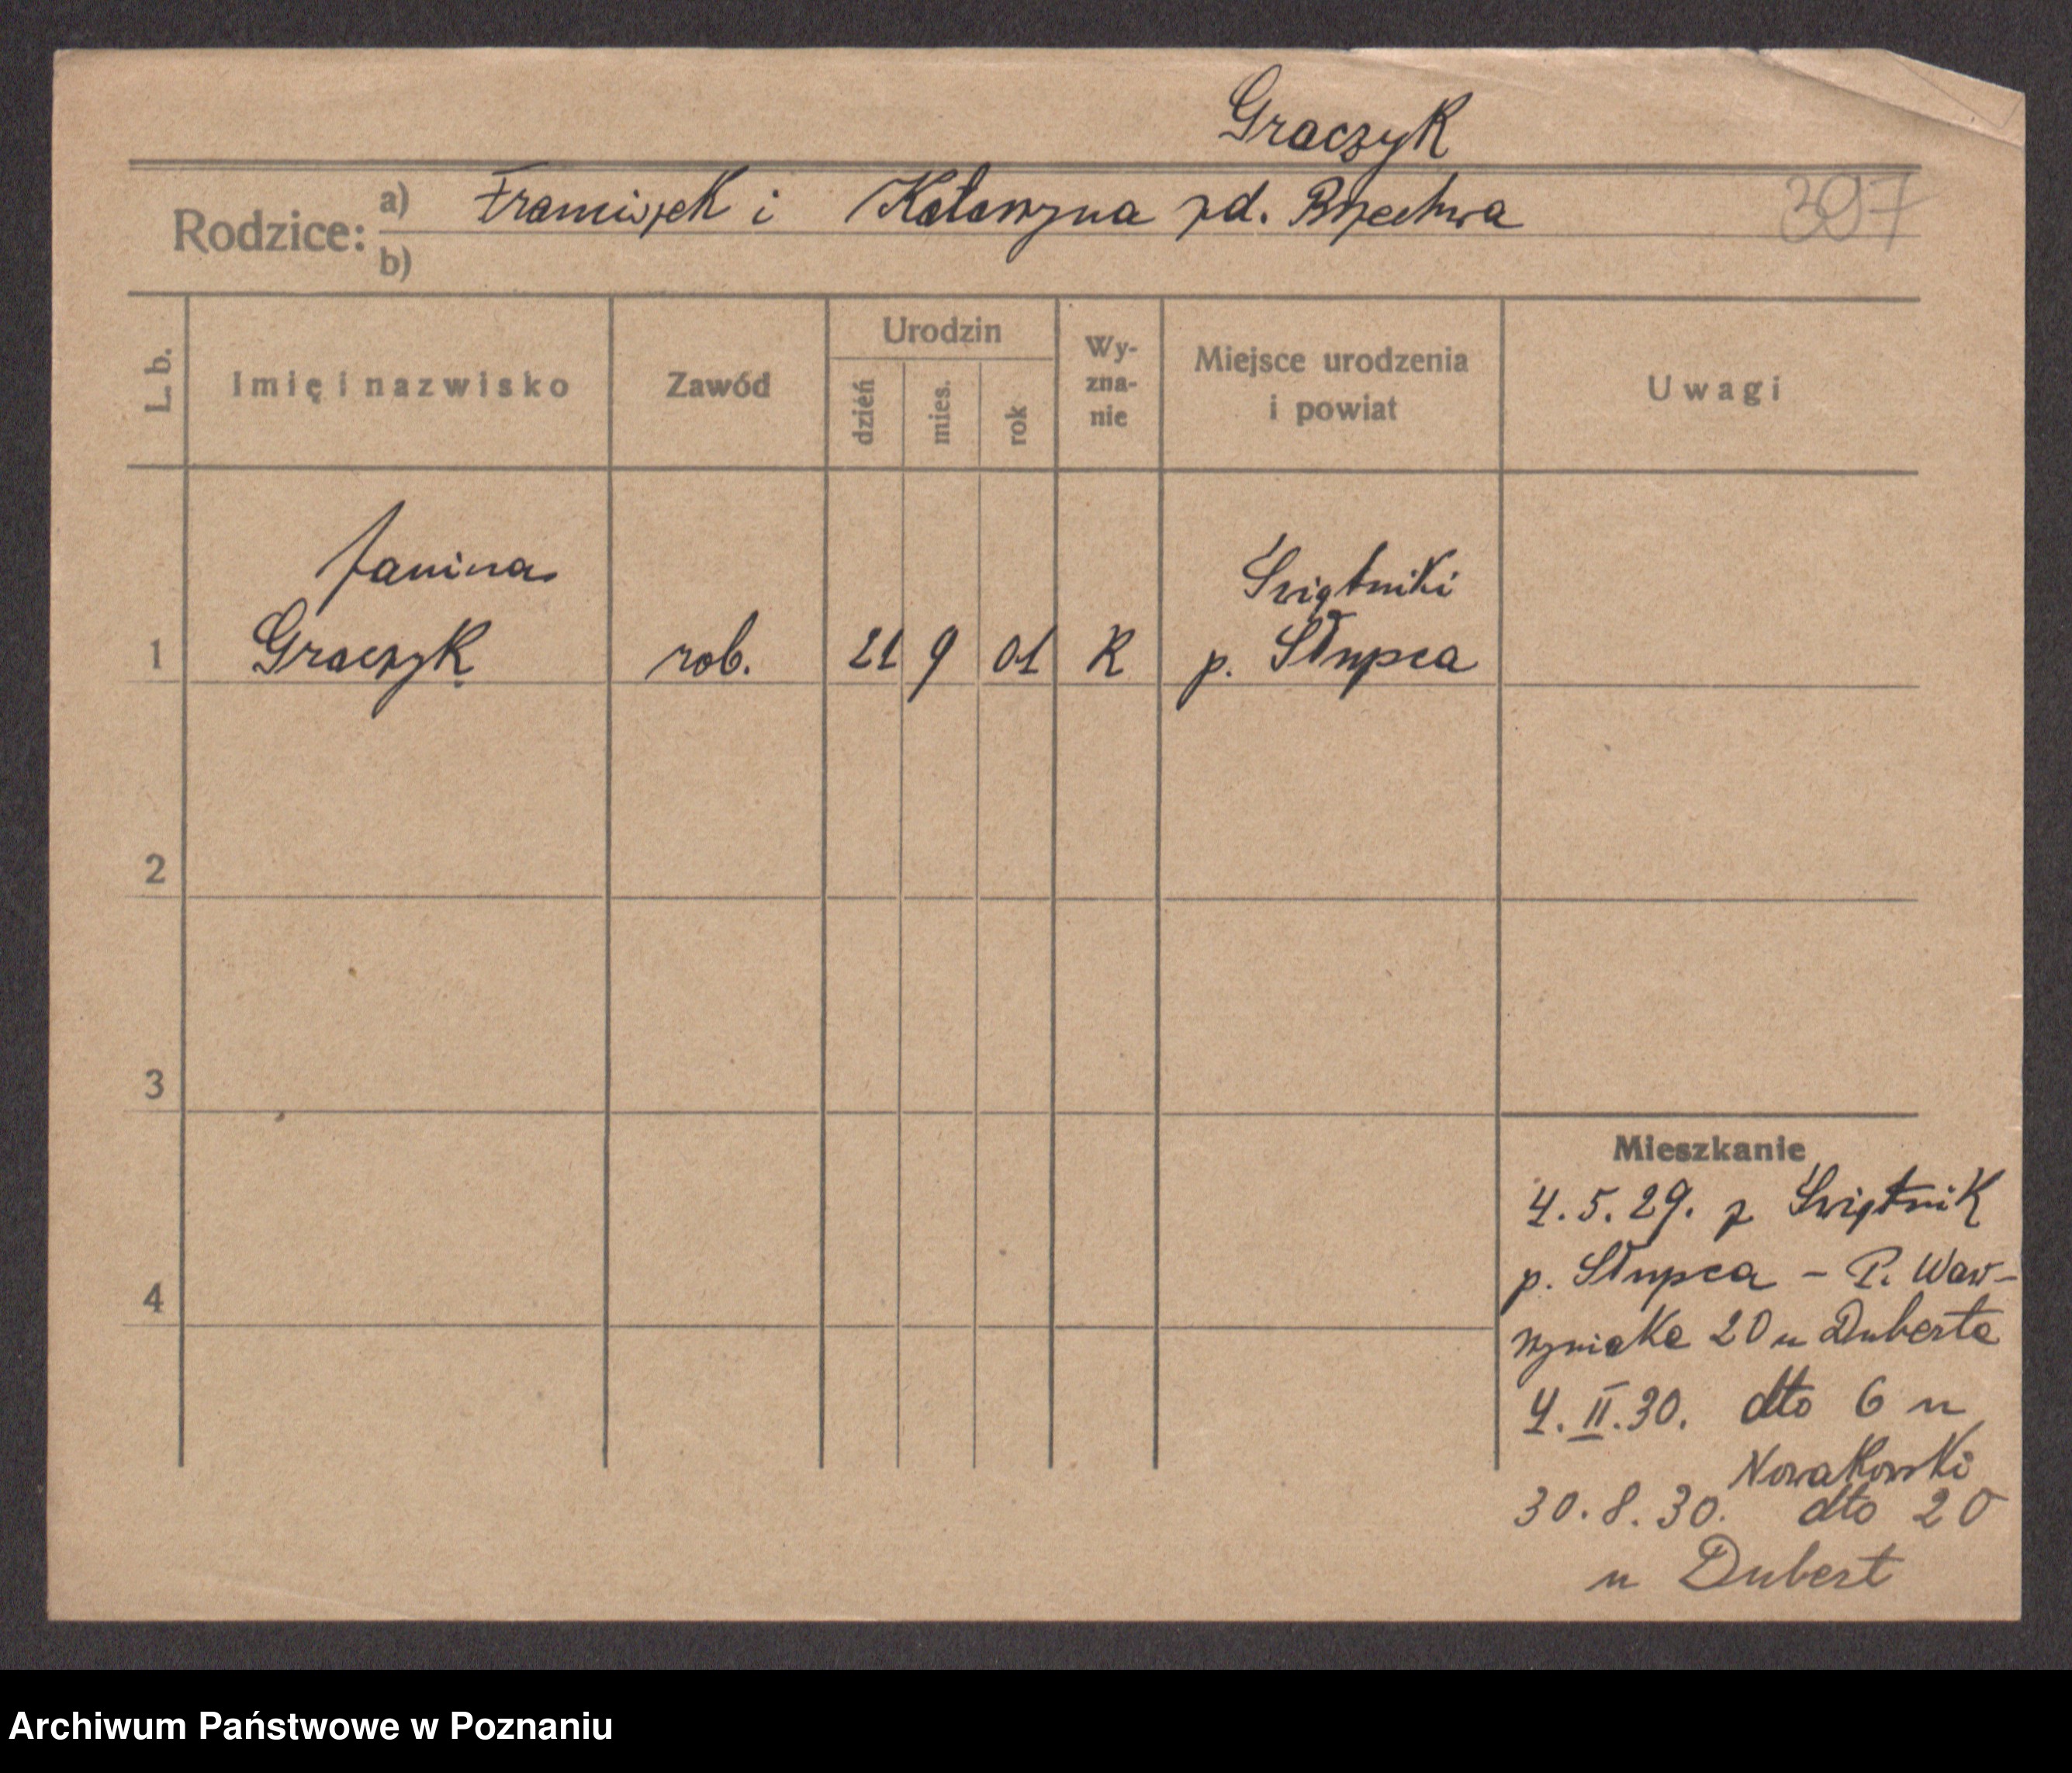 Graczyk
Rodzice: a) Franciszek i Katarzyna zd. Brzechwa 397
b)
L. b. Imię i nazwisko Zawód Urodzin dzień mies. rok Wy-zna-nie Miejsce urodzenia i powiat Uwagi
Janina Świątniki
1 Graczyk rob. 21 9 01 R p. Słupca
2
3
Mieszkanie
4.5.29. z Świątnik
p. Słupca - P. Waw-
4
rzyniaka 20 u Duberta
4.II.30. dto 6 u
Nowakowski
30.8.30. dto 20
u Dubert
Archiwum Państwowe w Poznaniu